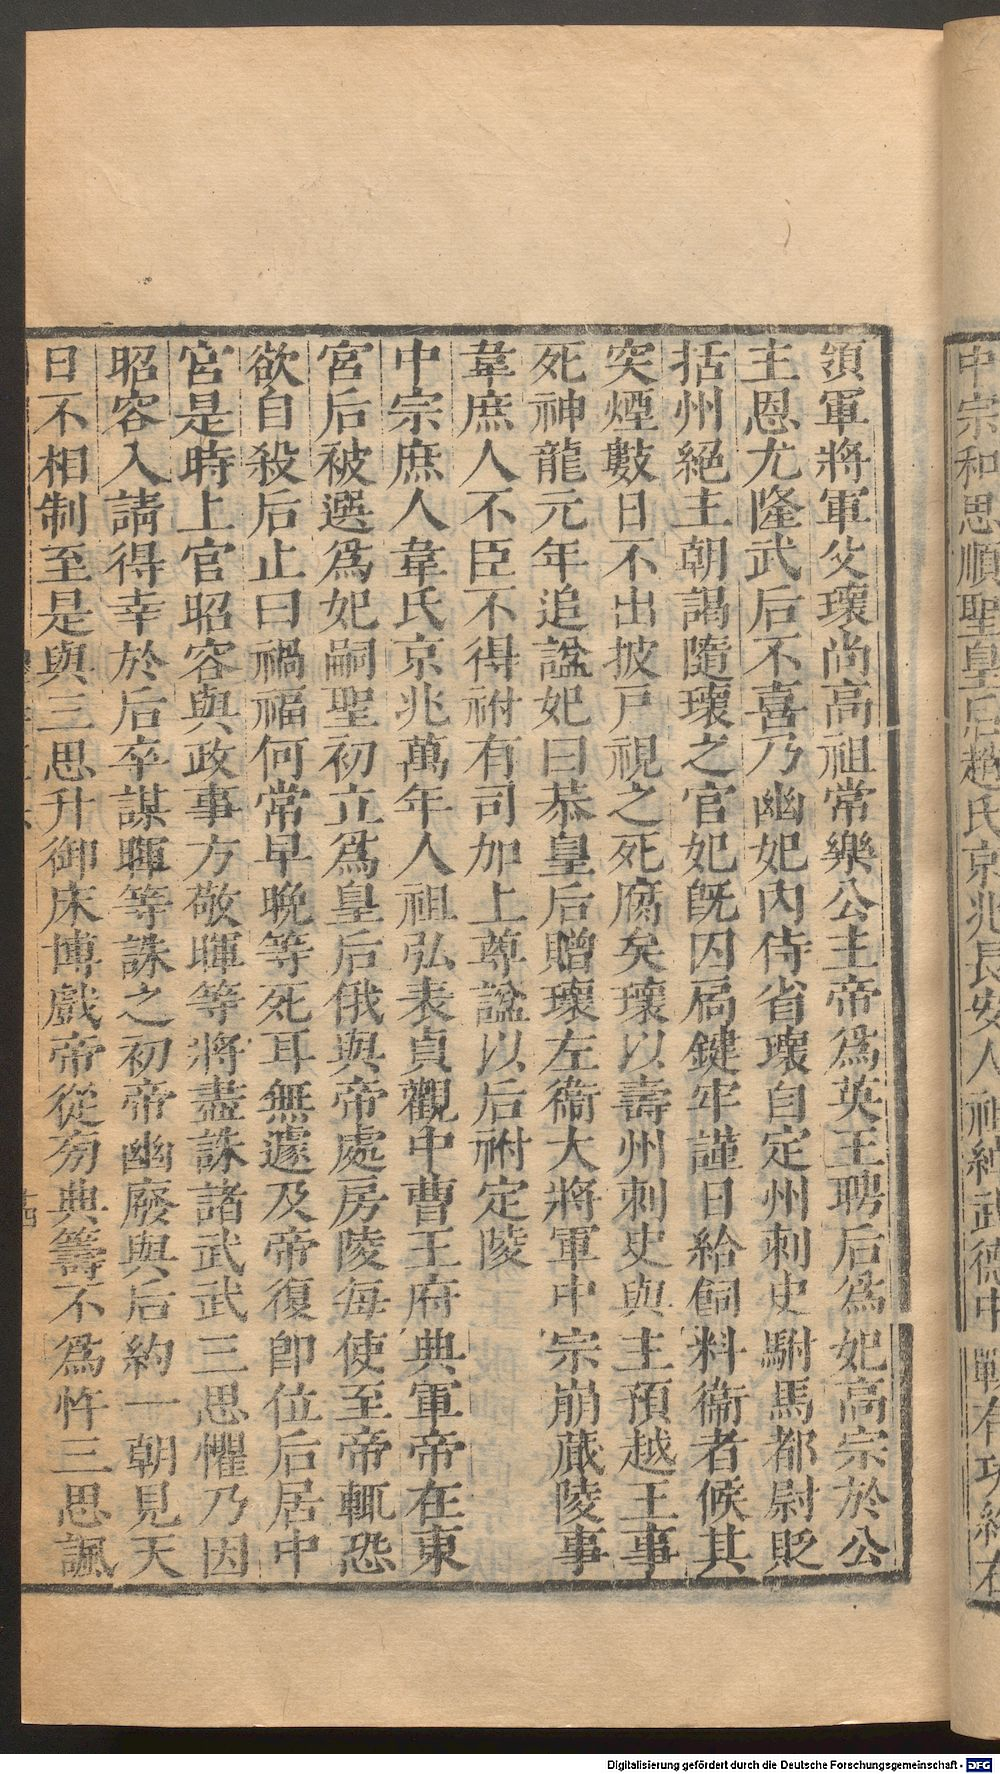 中宗和思順聖皇后趙氏京兆長安人祖綽武德中戰有功終右
領軍將軍父瓌尚高祖常樂公主帝爲英王聘后爲妃高宗於公
主恩尤隆武后不喜乃幽妃內侍省瓌自定州刺史駙馬都尉貶
括州絕主朝謁隨瓌之官妃旣囚扃鍵牢謹日給飼料衞者候其
突煙數日不出披戶視之死腐矣瓌以壽州刺史與主預越王事
死神龍元年追諡妃曰恭皇后贈瓌左衞大將軍中宗崩葳陵事
韋庶人不臣不得祔有司加上尊諡以后祔定陵
中宗庶人韋氏京兆萬年人祖弘表貞觀中曹王府典軍帝在東
宮后被選爲妃嗣聖初立爲皇后俄與帝處房陵每使至帝輒恐
欲自殺后止曰禍福何常早晚等死耳無遽及帝復卽位后居中
宮是時上官昭容與政事方敬暉等將盡誅諸武武三思懼乃因
昭容入請得幸於后卒謀暉等誅之初帝幽廢與后約一朝見天
日不相制至是與三思升御床博戲帝從旁典籌不爲忤三思諷
十四
Digitalisierung gefördert durch die Deutsche Forschungsgemeinschaft - DFG